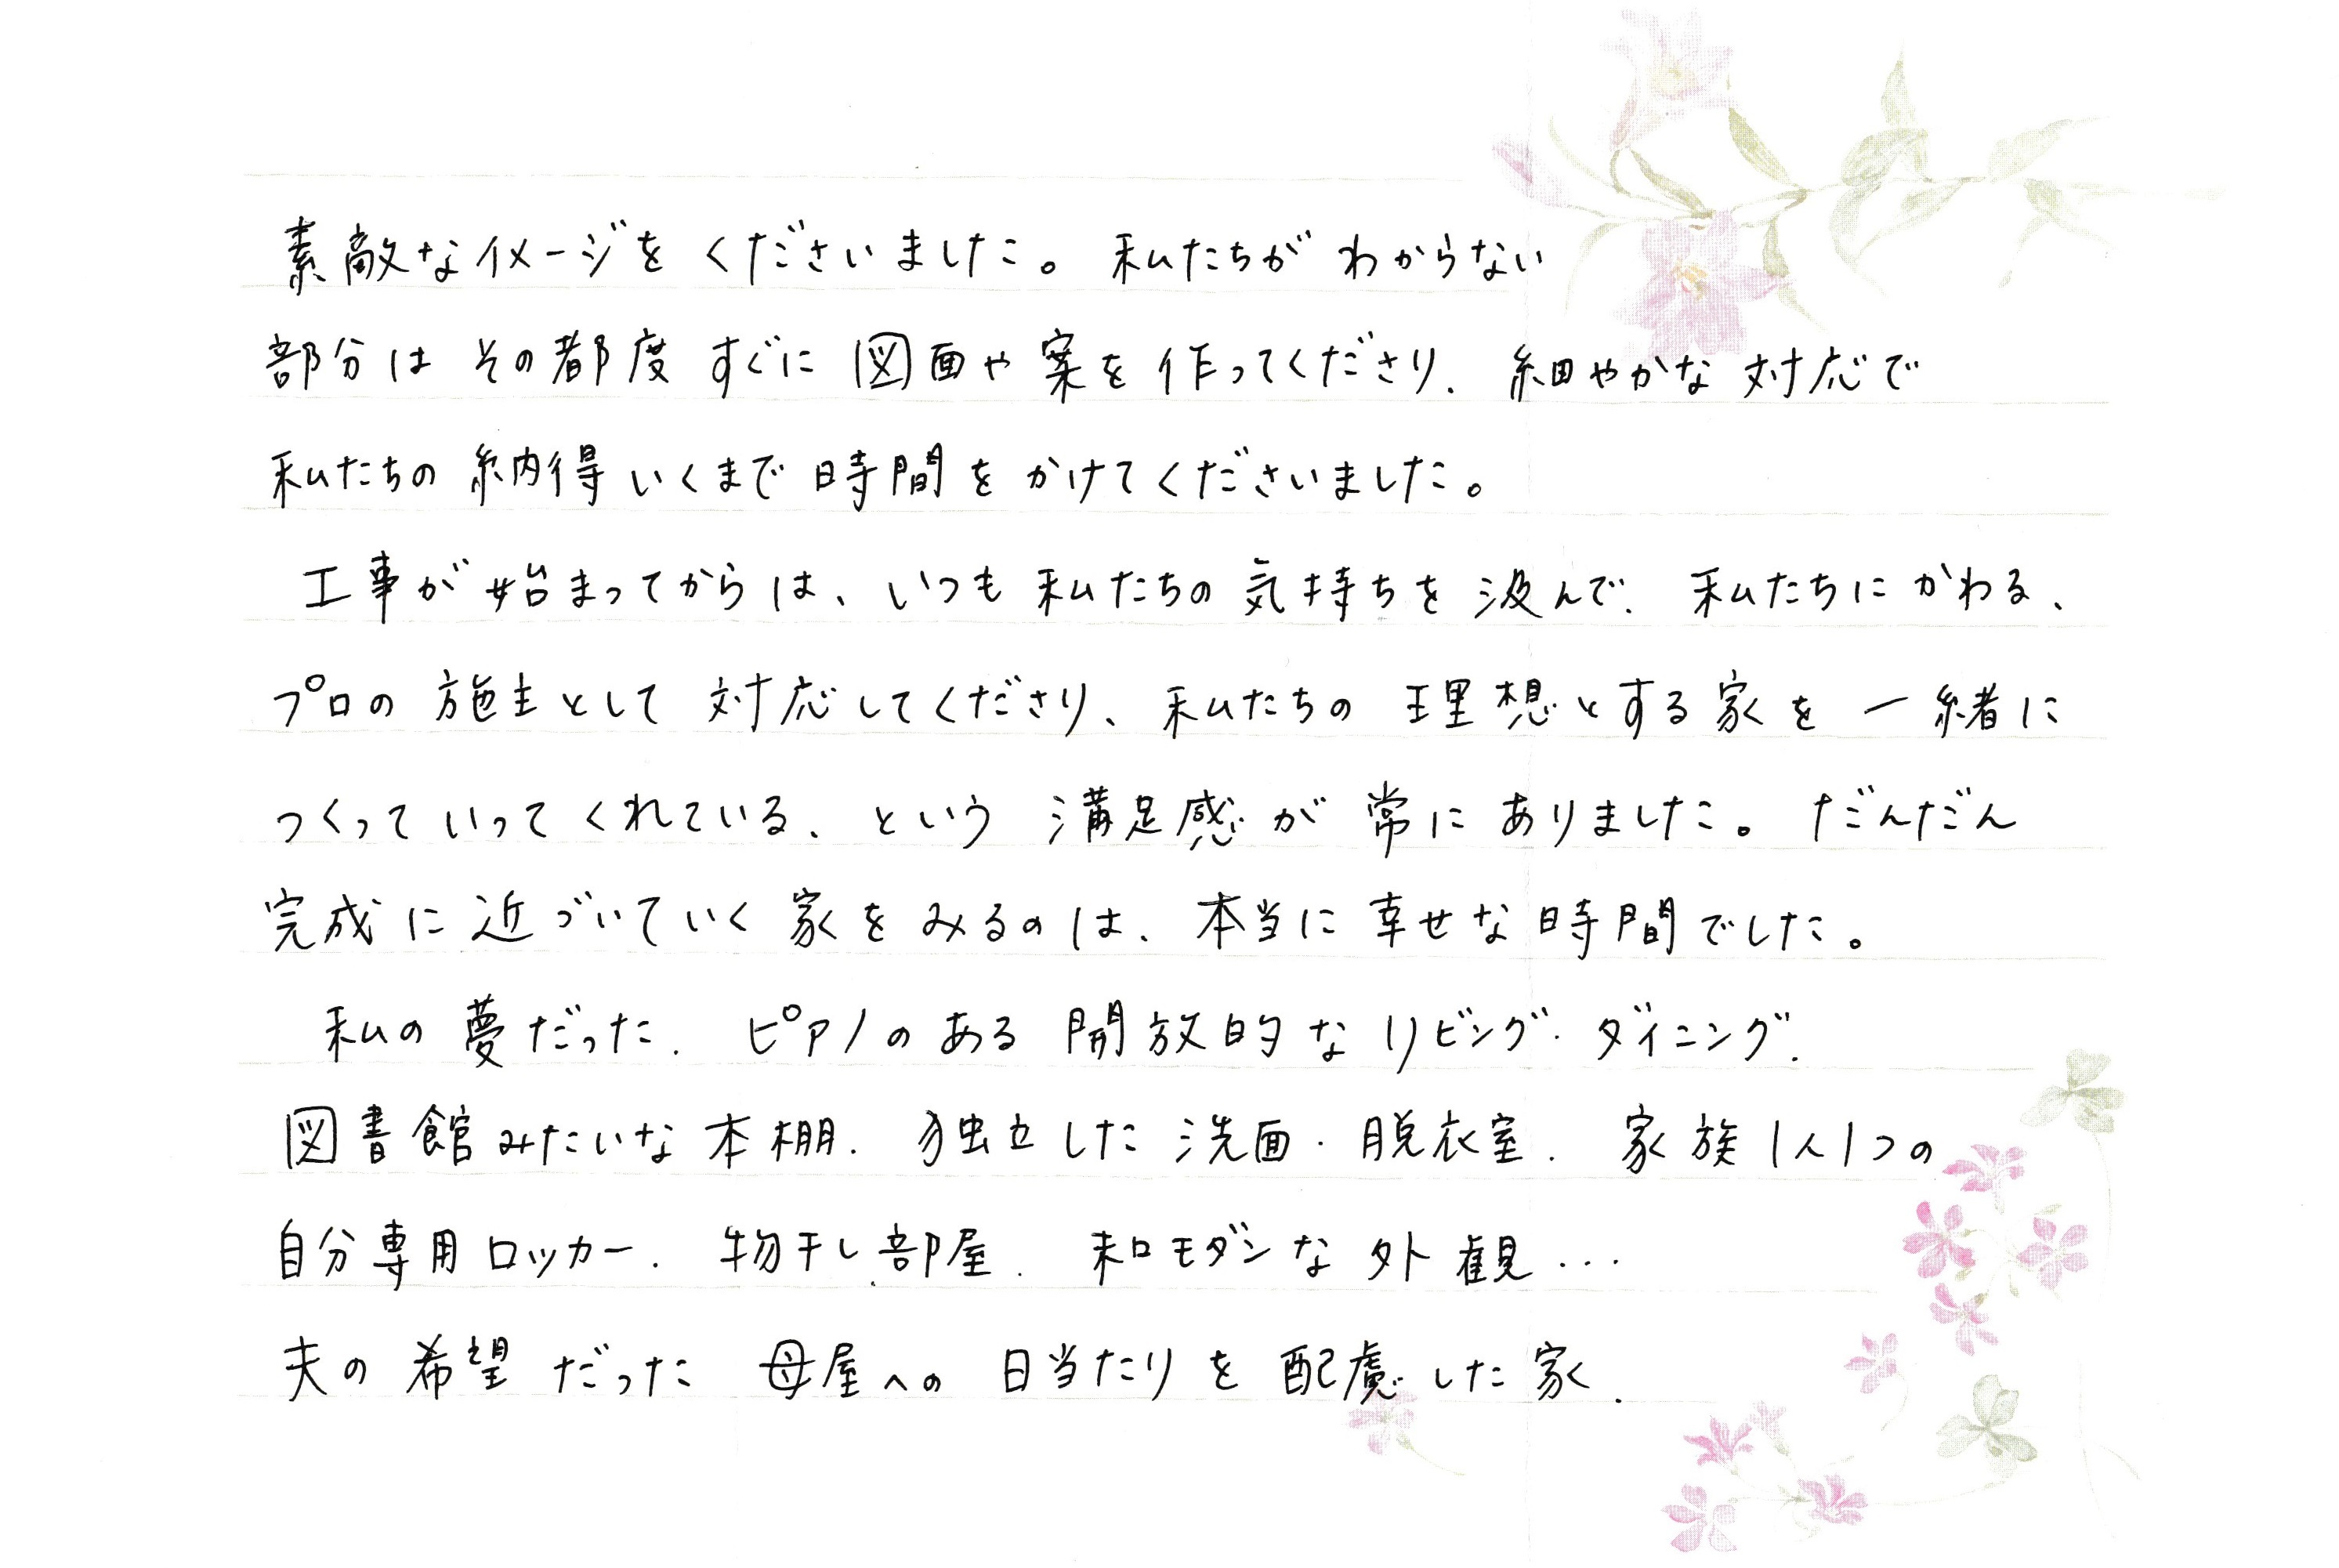 素敵なイメージをくださいました。私たちがわからない
部分はその都度すぐに図面や案を作ってくださり、細やかな対応で
私たちの納得いくまで時間をかけてくださいました。
工事が始まってからは、いつも私たちの気持ちを汲んで、私たちにかわる、
プロの施主として対応してくださり、私たちの理想とする家を一緒に
つくっていってくれている、という満足感が常にありました。だんだん
完成に近づいていく家をみるのは、本当に幸せな時間でした。
私の夢だった、ピアノのある開放的なリビング・ダイニング、
図書館みたいな本棚、独立した洗面・脱衣室、家族1人1つの
自分専用ロッカー、物干し部屋、和モダンな外観…
夫の希望だった母屋への日当たりを配慮した家、